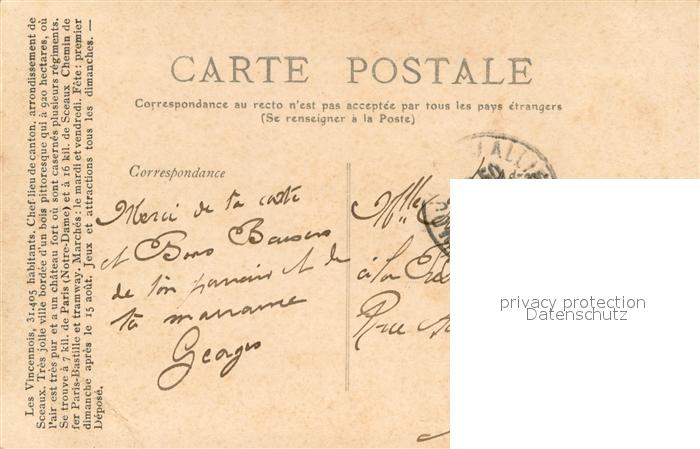 CARTE POSTALE
Correspondance au recto n'est pas acceptée par tous les pays étrangers
(Se renseigner à la Poste)
Correspondance
Merci de ta carte
et Bons Baisers
de ton parrain et de
ta marraine
Georges
Mlle
à la
Rue
privacy protection
Datenschutz
Les Vincennois, 31.405 habitants. Chef lieu de canton, arrondissement de
Sceaux. Très jolie ville bordée d'un bois pittoresque qui à 920 hectares, où
l'air est très pur et a un château fort où sont casernés plusieurs régiments.
Se trouve à 7 kil. de Paris (Notre-Dame) et à 16 kil. de Sceaux Chemin de
fer Paris-Bastille et tramway. Marchés: le mardi et vendredi. Fête: premier
dimanche après le 15 août. Jeux et attractions tous les dimanches. —
Déposé.